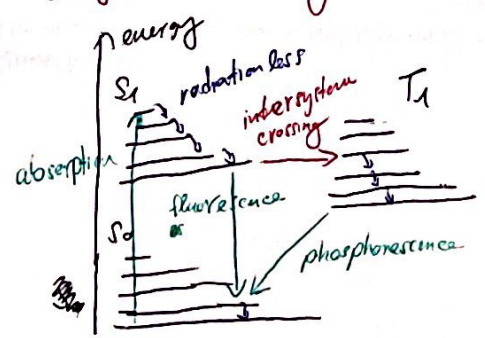 energy
S1
radiationless
intersystem
crossing
T1
absorption
fluorescence
S0
phosphorescence